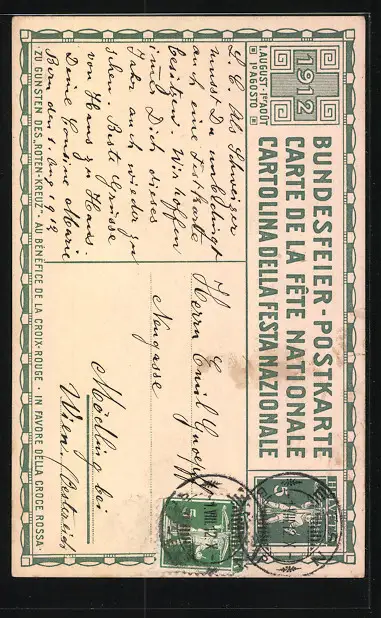 1912
1. AUGUST · 1ER AOÛT
1O AGOSTO
BUNDESFEIER-POSTKARTE
CARTE DE LA FÊTE NATIONALE
CARTOLINA DELLA FESTA NAZIONALE
L. E. Als Schweizer
musst Du unbedingt
auch eine Festkarte
besitzen. Wir hoffen
Dich dieses
Jahr auch wieder zu
sehen. Beste Grüsse
von Haus zu Haus.
Deine Cousine Marie
Bern den 1. Aug. 1912
Herrn Emil
Neugasse
Mödling bei
Wien, Oesterreich
HELVETIA
5
5
· ZU GUNSTEN DES „ROTEN-KREUZ" · AU BÉNÉFICE DE LA CROIX-ROUGE · IN FAVORE DELLA CROCE ROSSA ·